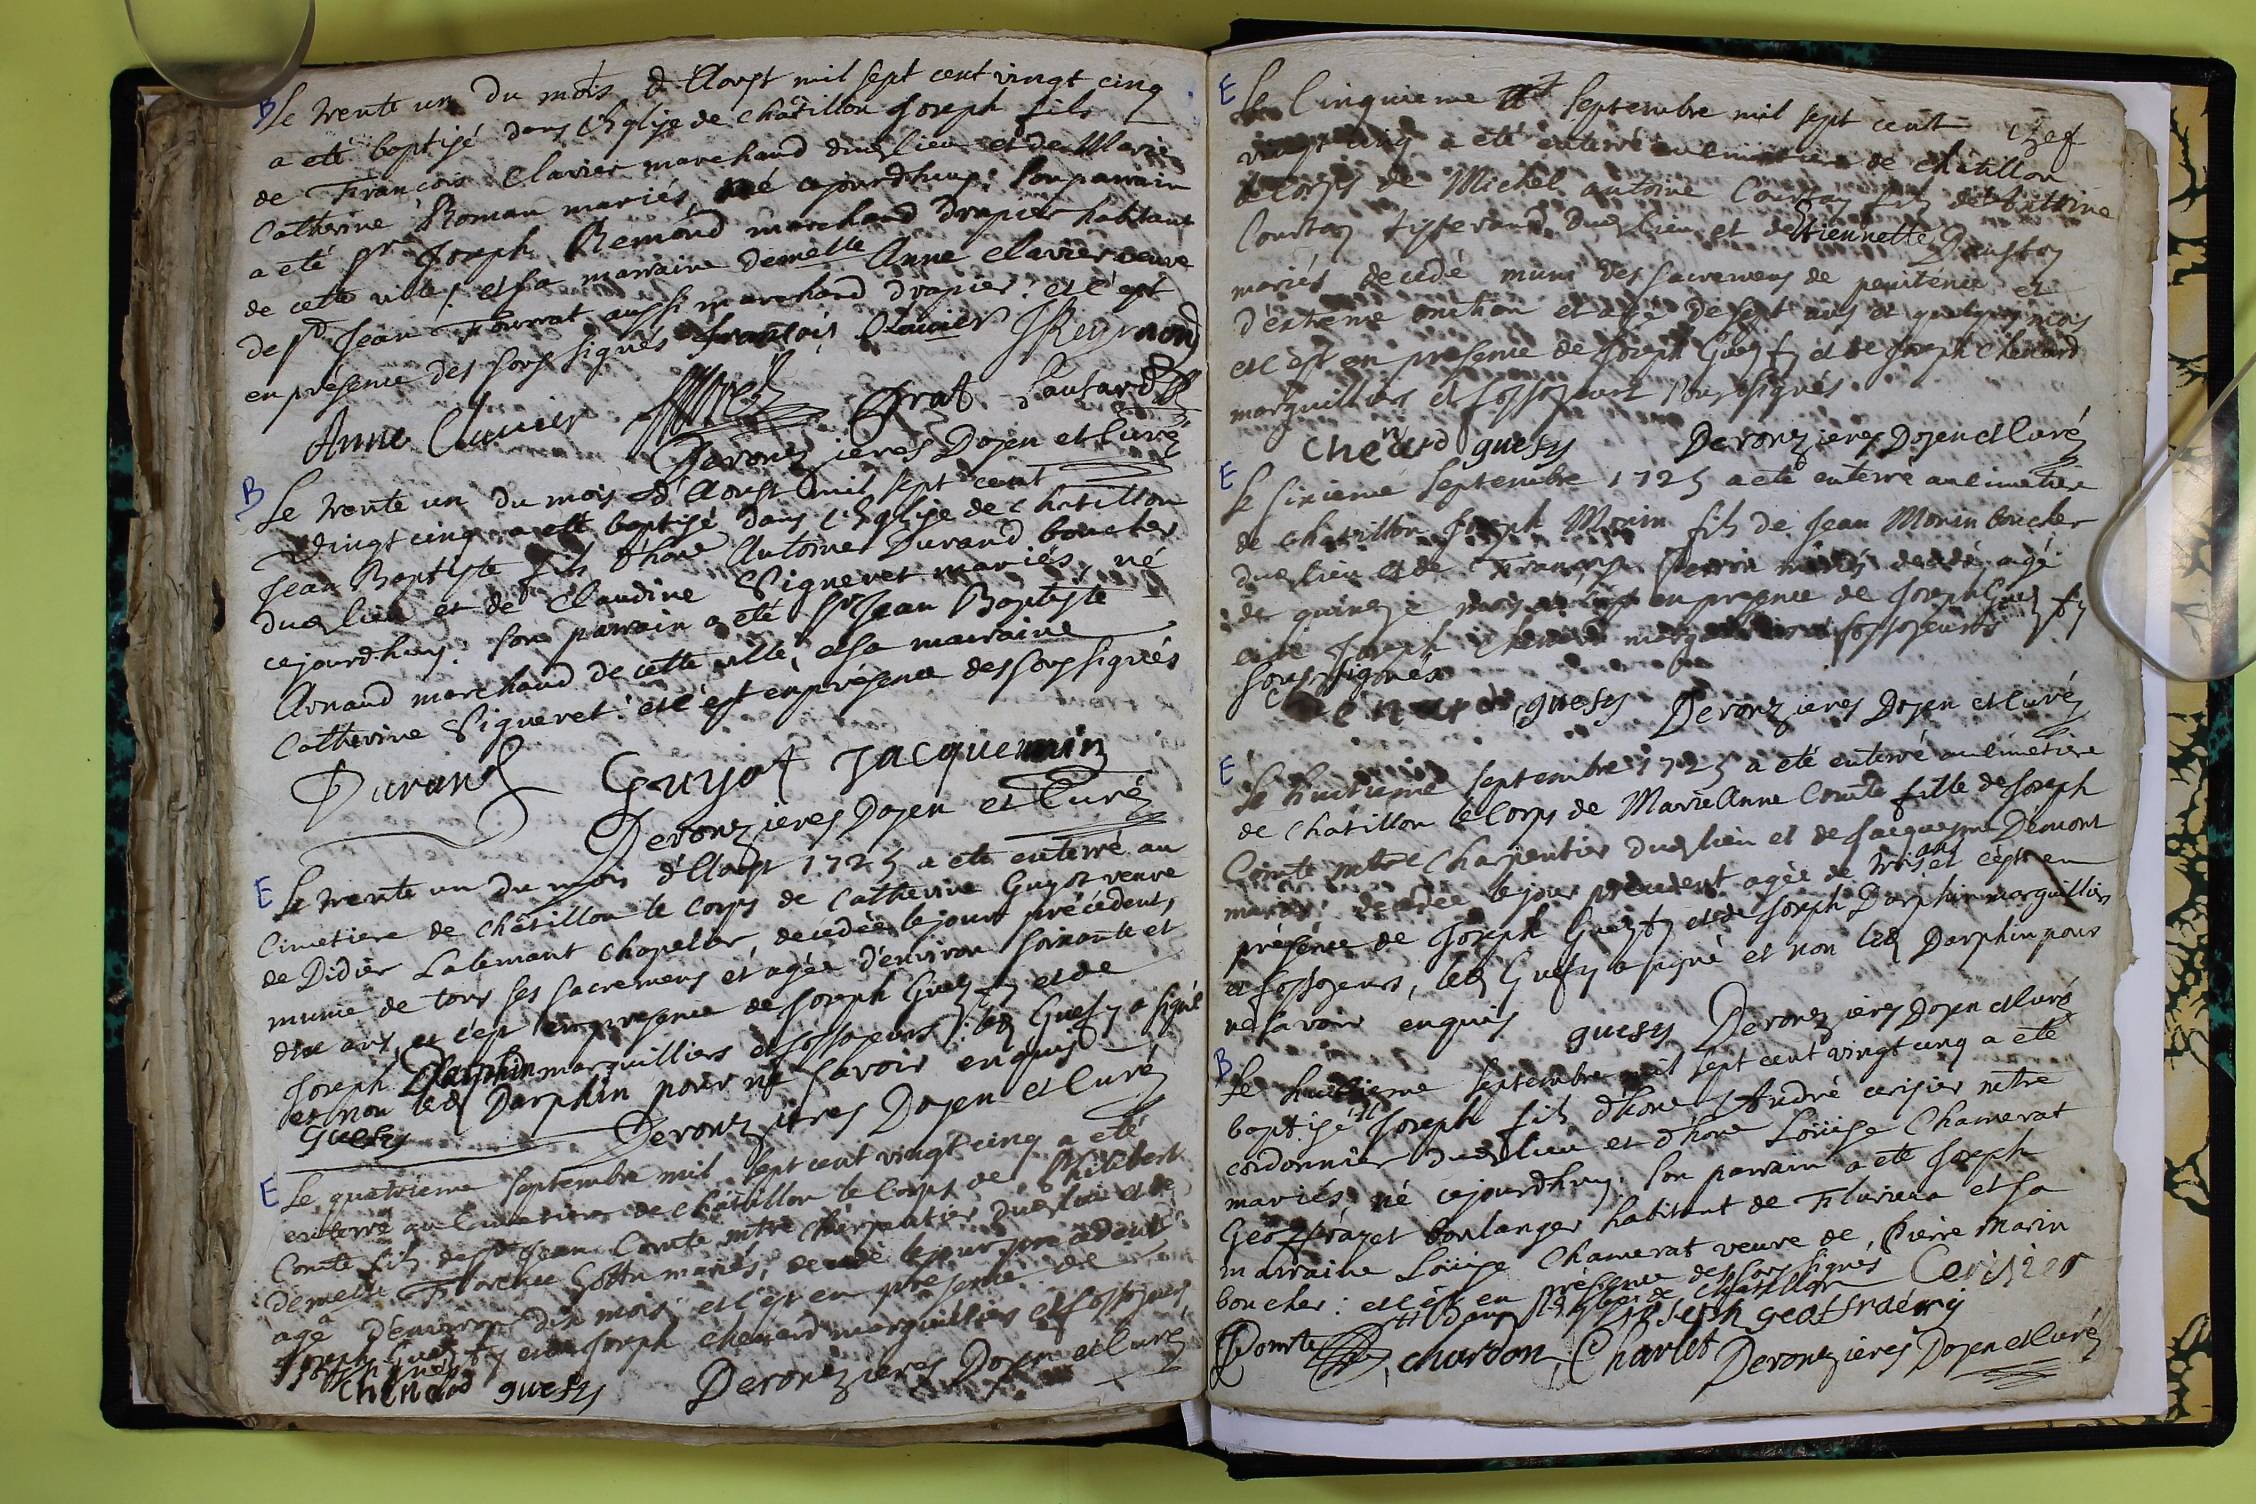 B Le trente un du mois d'Aoust mil sept cent vingt cinq
a eté baptisé dans l'Eglise de Châtillon Joseph fils
de François Clavier marchand dud lieu et de Marie
Catherine Roman mariés, né cejourdhuy: son parrain
a eté Sr Joseph Remond marchand drapier habitant
de cette ville; et sa marraine demelle Anne Clavier veuve
de Sr Jean aussi marchand drapier: et c'est
en présence des soussignés François Clavier JReymond
Anne Clavier
Deronzieres Doyen et Curé
B Le trente un du mois d'Aoust mil sept cent
vingt cinq a eté baptisé dans l'Eglise de Chatillon
Jean Baptiste fils d'hone Antoine Durand boucher
dud lieu et de Claudine Vigneret mariés, né
cejourdhuy: son parrain a eté Sr Jean Baptiste
Arnaud marchand de cette ville, et sa marraine
Catherine Vigneret: et c'est en présence des soussignés
Durand Guyot Jacquemin
Deronzieres Doyen et Curé
E Le trente un du mois d'Aoust 1725 a eté enterré au
Cimetiere de Châtillon le Corps de Catherine Guyot veuve
de Didier Lalemant Chapelier, decédée le jour précédent,
munie de tous ses sacremens et agée d'environ soixante et
dix ans, et c'est en presence de Joseph Guezsy et de
Joseph Darphin marguilliers et fossoyeurs: led Guesy a signé
et non led Darphin pour ne savoir enquis
guesy Deronzieres Doyen et Curé
E Le quatrieme Septembre mil sept cent vingt cinq a eté
enterré au Cimetiere de Châtillon le Corps de Philibert
Comte fils de Sr Jean Comte mtre Charpentier dud lieu et de
demelle Florence mariés, decedé le jour precedent
agé d'environ dix mois et c'est en presence de
Joseph Guezsy et de Joseph Chenard marguilliers et fossoyeurs
soussignés
Chenard guesy Deronzieres Doyen et Curé
E Le Cinquieme Septembre mil sept cent
vingt cinq a eté enterré au Cimetiere de châtillon
le Corps de Michel antoine fils de
tisserand dud lieu et de Etiennette
mariés decedé muni des sacremens de penitence et
d'extrème onction et agé de sept ans et quelques mois
et c'est en presence de Joseph Guezsy et de Joseph Chenard
marguilliers et fossoyeurs soussignés
Chenard guesy Deronzieres Doyen et Curé
E Le sixieme Septembre 1725 a eté enterré au Cimetiere
de Chatillon Joseph Morin fils de Jean Morin boucher
dud lieu et de mariés decedé agé
de quinze mois et c'est en presence de Joseph Guezsy
et de Joseph Chenard marguilliers fossoyeurs
soussignés
Chenard guesy Deronzieres Doyen et Curé
E Le huitieme Septembre 1725 a eté enterré au Cimetiere
de Chatillon le Corps de Marie Anne Comte fille de Joseph
Comte mtre Charpentier dud lieu et de Jacquesme Demont
mariés decedée le jour precedent agée de trois ans et c'est en
présence de Joseph Guezsy et de Joseph Darphin marguilliers
et fossoyeurs, led Guesy a signé et non led Darphin pour
ne savoir enquis guesy Deronzieres Doyen et Curé
B Le huitieme Septembre mil sept cent vingt cinq a eté
baptisé # Joseph fils d'hone André cerisier mtre
cordonnier dud lieu et d'hone Loüise Chamerat
mariés né cejourdhuy. son parrain a eté Joseph
boulanger habitant de Flurieux et sa
marraine Loüise Chamerat veuve de Pierre Marin
boucher: et c'est en présence des soussignés Cerisier
# dans l'Eglise de Chatillon
Comte, chardon, Charlet Deronzieres Doyen et Curé